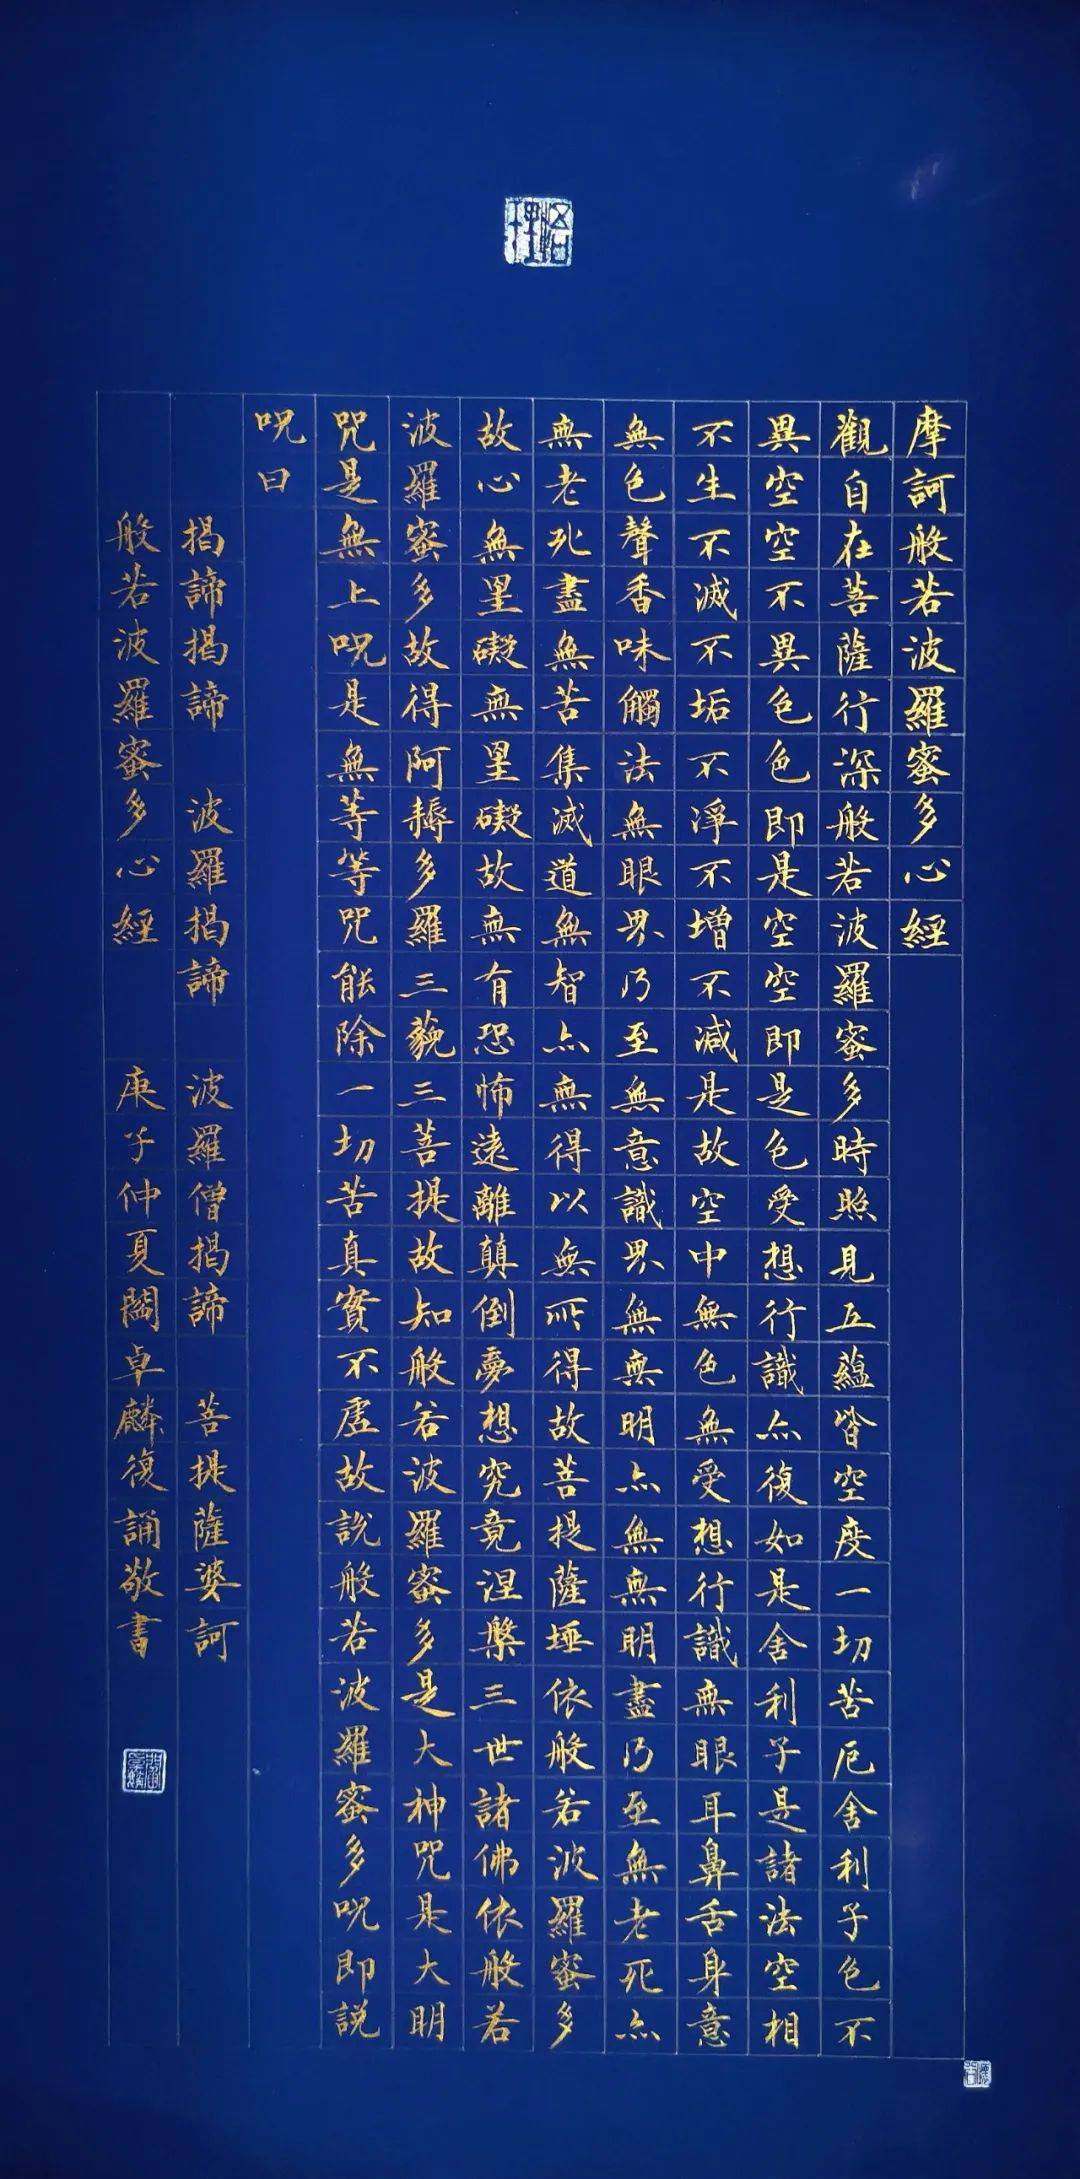 摩訶般若波羅蜜多心經
觀自在菩薩行深般若波羅蜜多時照見五蘊皆空度一切苦厄舍利子色不
異空空不異色色即是空空即是色受想行識亦復如是舍利子是諸法空相
不生不滅不垢不淨不增不減是故空中無色無受想行識無眼耳鼻舌身意
無色聲香味觸法無眼界乃至無意識界無無明亦無無明盡乃至無老死亦
無老死盡無苦集滅道無智亦無得以無所得故菩提薩埵依般若波羅蜜多
故心無罣礙無罣礙故無有恐怖遠離顛倒夢想究竟涅槃三世諸佛依般若
波羅蜜多故得阿耨多羅三藐三菩提故知般若波羅蜜多是大神咒是大明
咒是無上呪是無等等咒能除一切苦真實不虛故說般若波羅蜜多呪即說
呪曰
揭諦揭諦 波羅揭諦 波羅僧揭諦 菩提薩婆訶
般若波羅蜜多心經 庚子仲夏卓麟復誦敬書